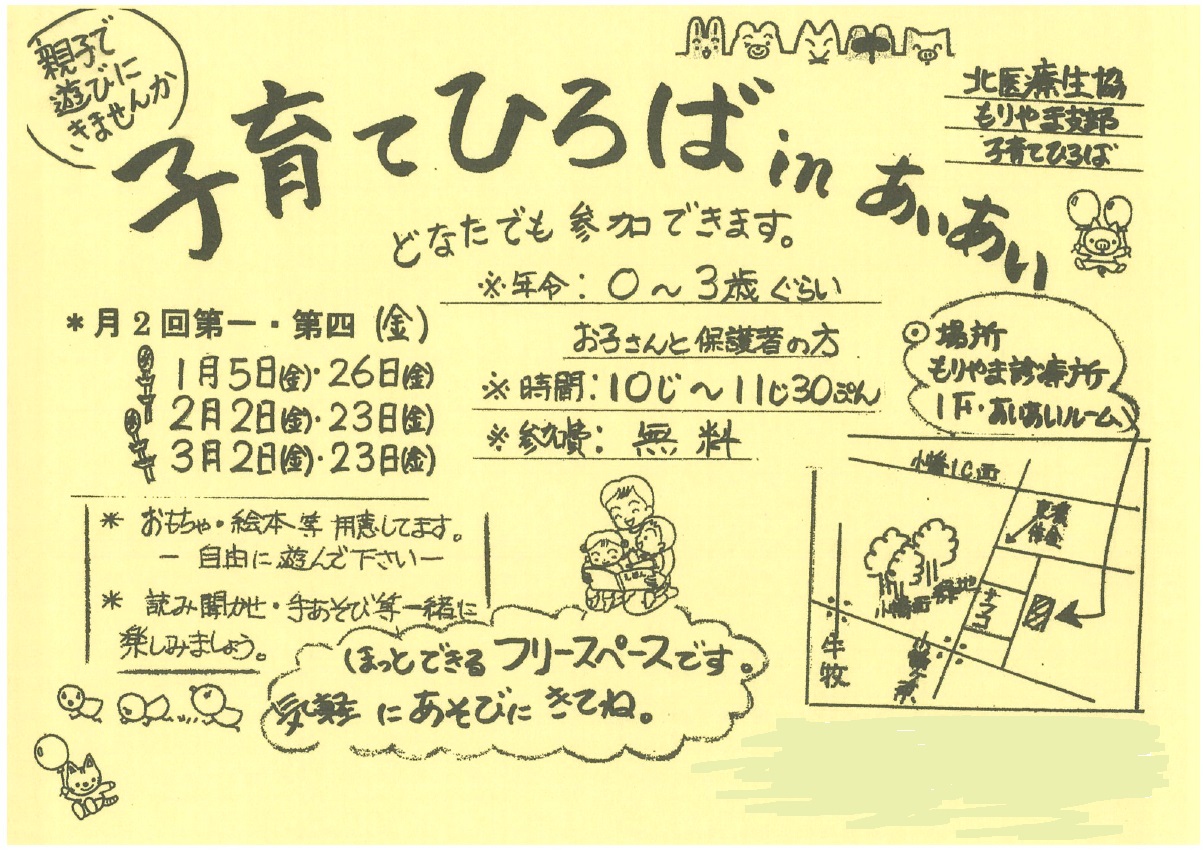 親子で
遊びに
きませんか
子育てひろば in あいあい
北医療生協
もりやま支部
子育てひろば
どなたでも参加できます。
※年令：0～3歳ぐらい
お子さんと保護者の方
※時間：10じ～11じ30ぷん
※参加費：無料
＊月2回第一・第四(金)
1月5日(金)・26日(金)
2月2日(金)・23日(金)
3月2日(金)・23日(金)
◎場所
もりやま診療所
1F・あいあいルーム
＊おもちゃ・絵本等用意してます。
ー自由に遊んで下さいー
＊読み聞かせ・手あそび等一緒に
楽しみましょう。
えほん
ほっとできるフリースペースです。
気軽にあそびにきてね。
小幡IC西
小幡西
牛牧
ナフコ